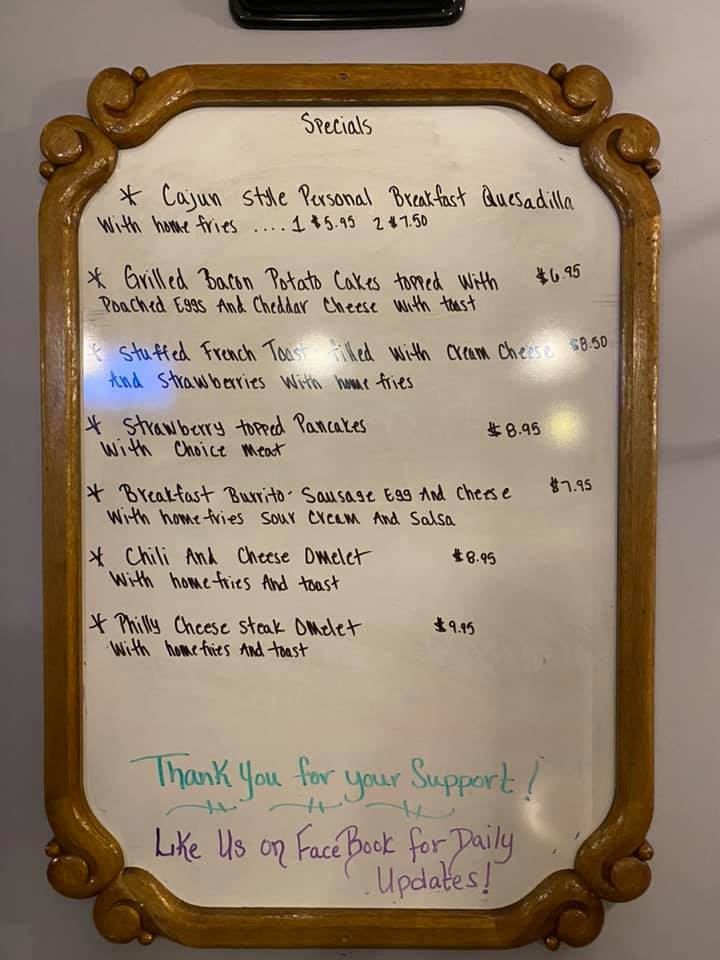 Specials
* Cajun style Personal Breakfast Quesadilla
With home fries .... 1 $5.95 2 $7.50
* Grilled Bacon Potato Cakes topped With $6.95
Poached Eggs And Cheddar Cheese With toast
* Stuffed French Toast filled With Cream Cheese $8.50
And Strawberries With home fries
* Strawberry topped Pancakes $8.95
With Choice Meat
* Breakfast Burrito - Sausage Egg And Cheese $7.95
With home fries Sour Cream And Salsa
* Chili And Cheese Omelet $8.95
With home fries And toast
* Philly Cheese Steak Omelet $9.95
With home fries And toast
Thank You for your Support!
Like Us on FaceBook for Daily
Updates!